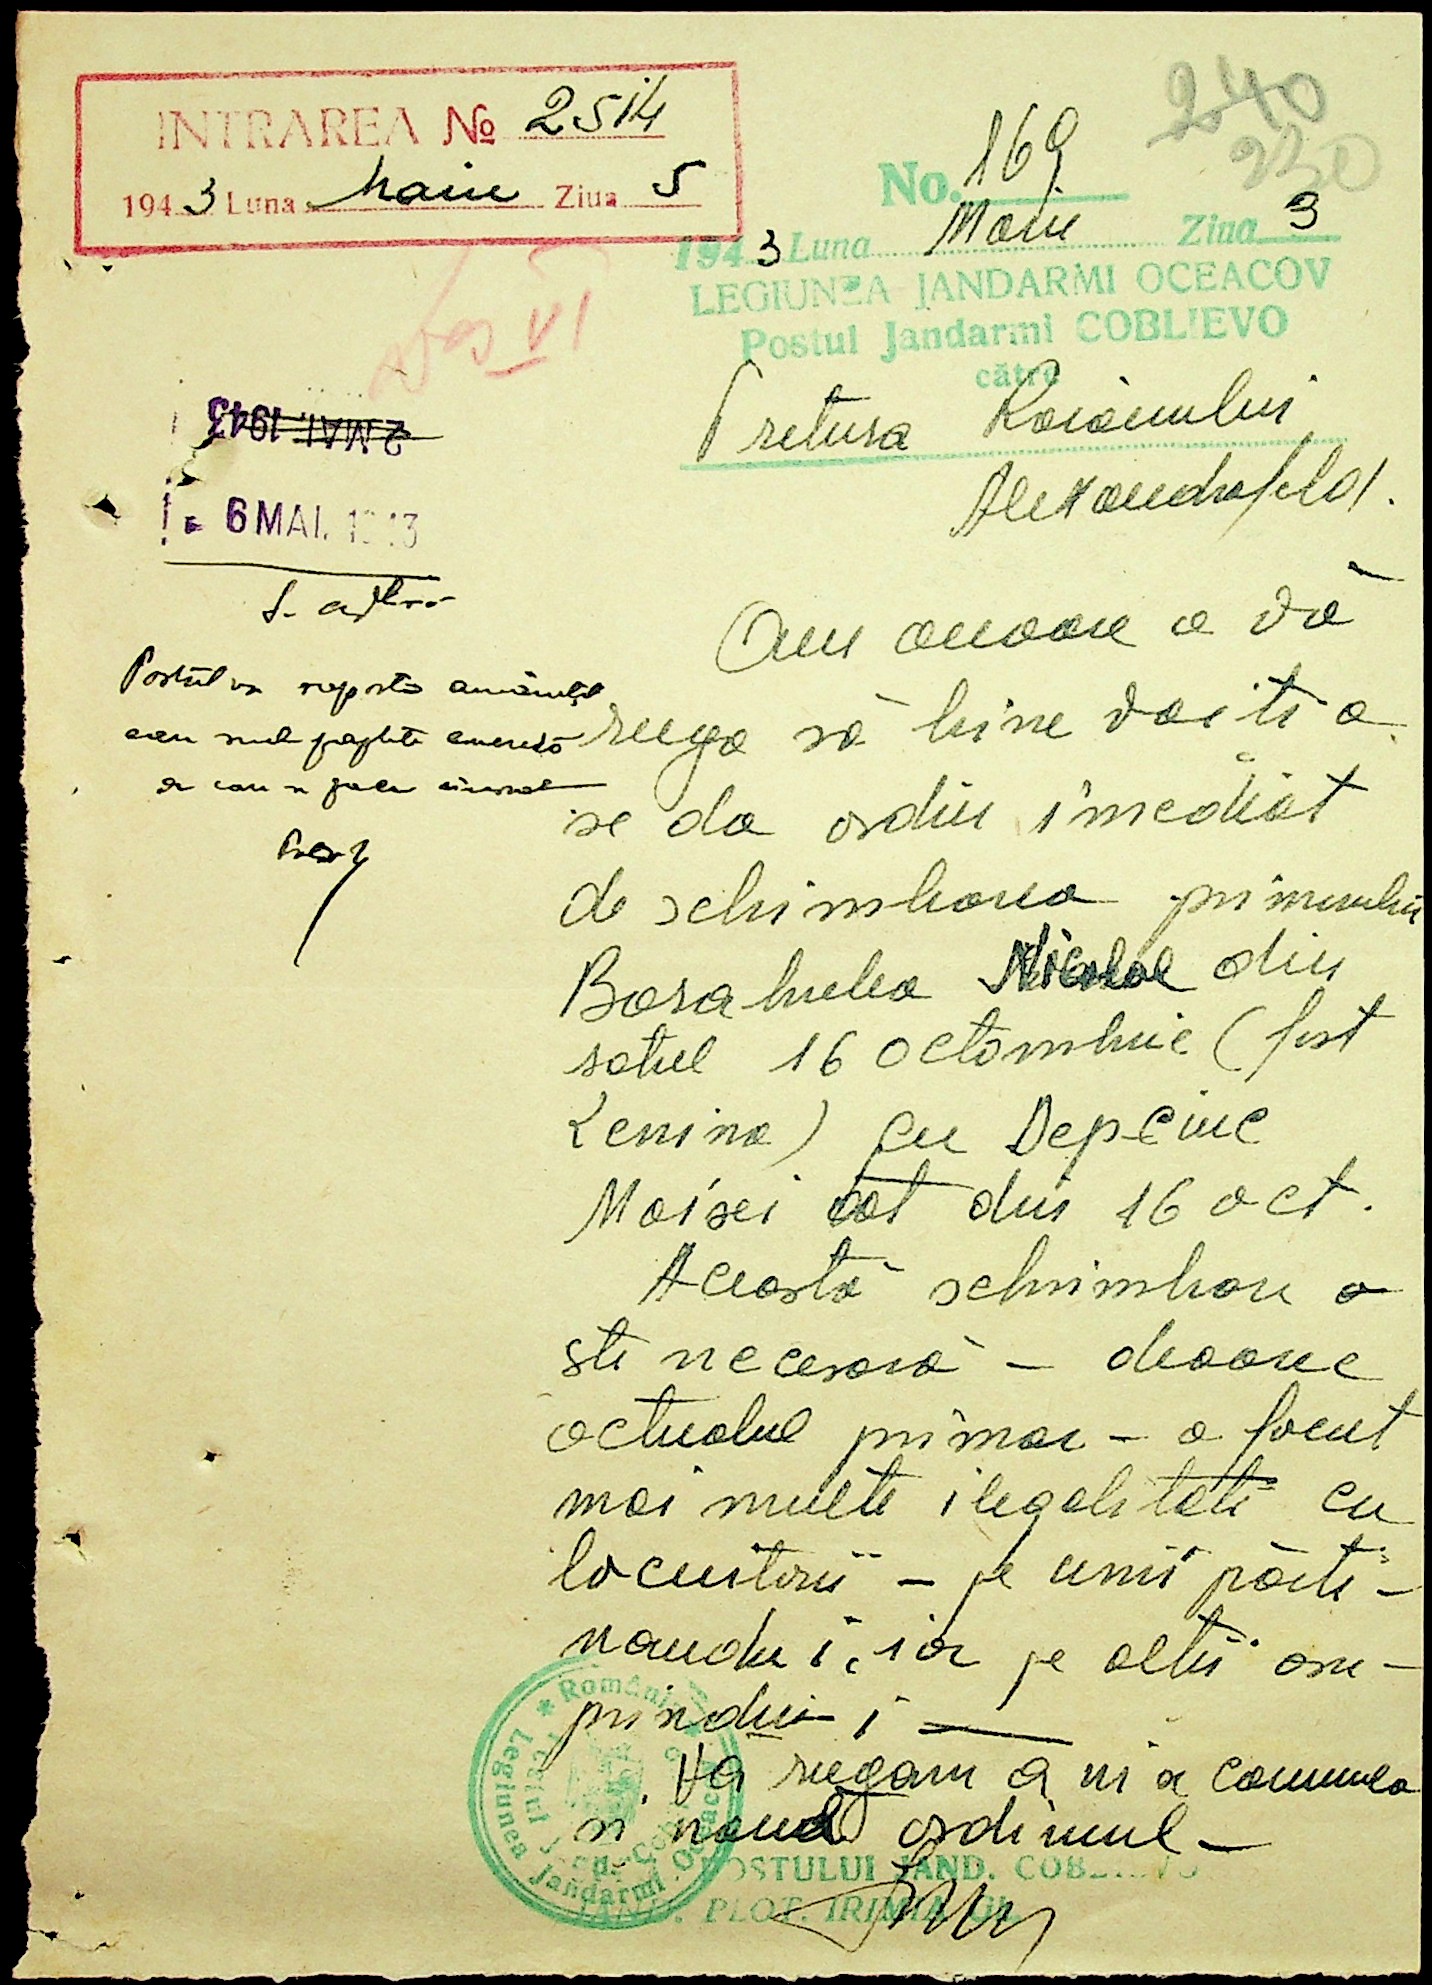 INTRAREA № 2514
1943 Luna Maiu Ziua 5
240
230
No. 169
1943 Luna Maiu Ziua 3
LEGIUNEA JANDARMI OCEACOV
Postul Jandarmi COBLIEVO
către
Pretura Raionului
Alexandrofeld.
Dos VI
2 MAI. 1943
6 MAI. 1943
Postul va raporta amănunțit
care sunt faptele
de care se face vinovat
Am onoare a vă
ruga să bine voiti a
se da ordin imediat
de schimbarea primarului
Barabulea Nicolae din
satul 16 octombrie (fost
Lenina) cu Depciuc
Moisei tot din 16 oct.
Această schimbare e
ste necesară – deoarece
actualul primar – a facut
mai multe ilegalitati cu
locuitorii – pe unii părti-
nandu i, iar pe altii asu-
prindui i —
Vă rugam a ni se comunica
si nouă ordinul –
POSTULUI JAND. COBLIEVO
JAND. PLOT. IRIMIA GH.
România
Legiunea Jandarmi Oceacov